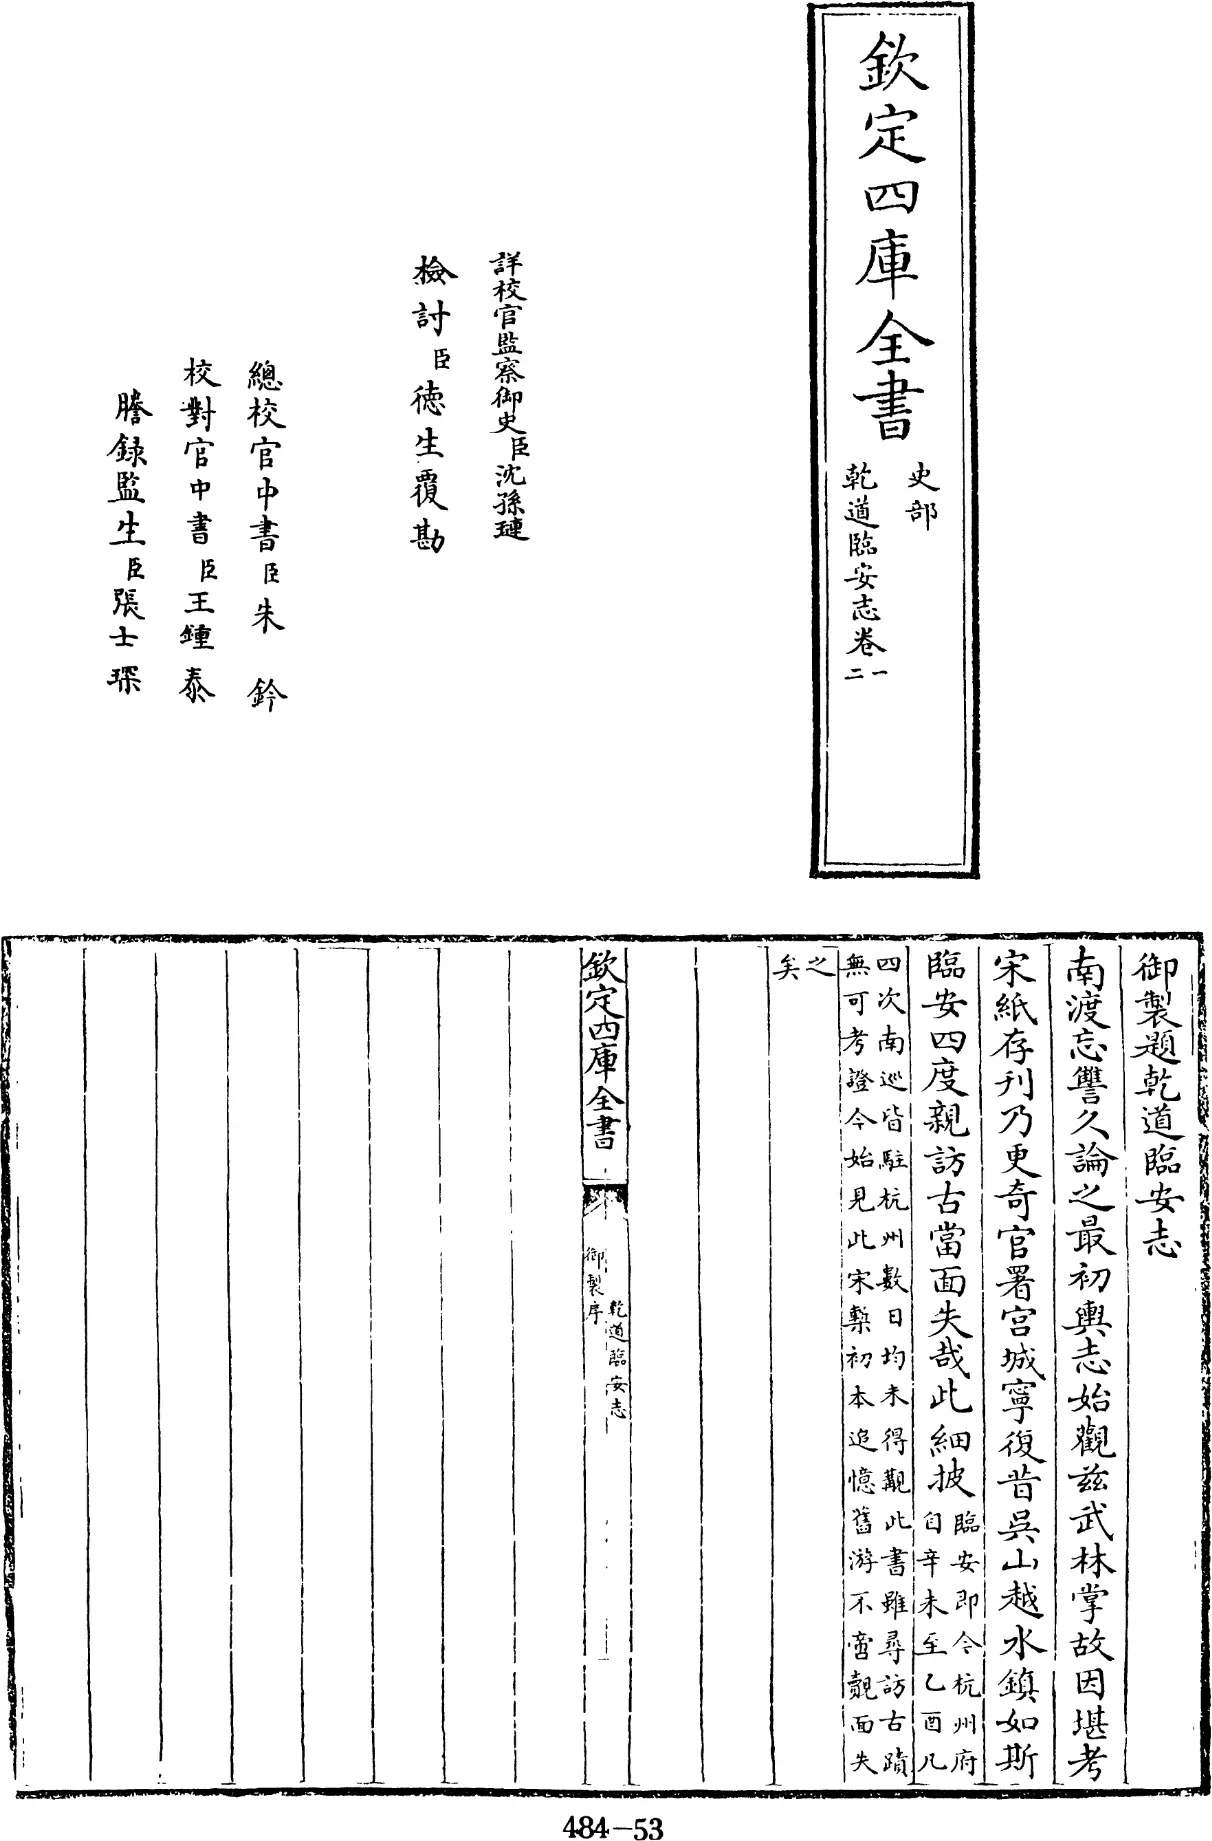 欽定四庫全書
史部
乾道臨安志卷一
二
詳校官監察御史臣沈孫璉
檢討臣德生覆勘
總校官中書臣朱鈐
校對官中書臣王鍾泰
謄錄監生臣張士琛
御製題乾道臨安志
南渡忘讐久論之最初輿志始觀兹武林掌故因堪考
宋紙存刋乃更奇官署宫城寧復昔吳山越水鎮如斯
臨安四度親訪古當面失哉此細披
臨安即今杭州府
自辛未至乙酉凡
四次南巡皆駐杭州數日均未得觀此書雖尋訪古蹟
無可考證今始見此宋槧初本追憶舊游不啻覿面失
之
矣
欽定四庫全書
乾道臨安志
御製序
484-53